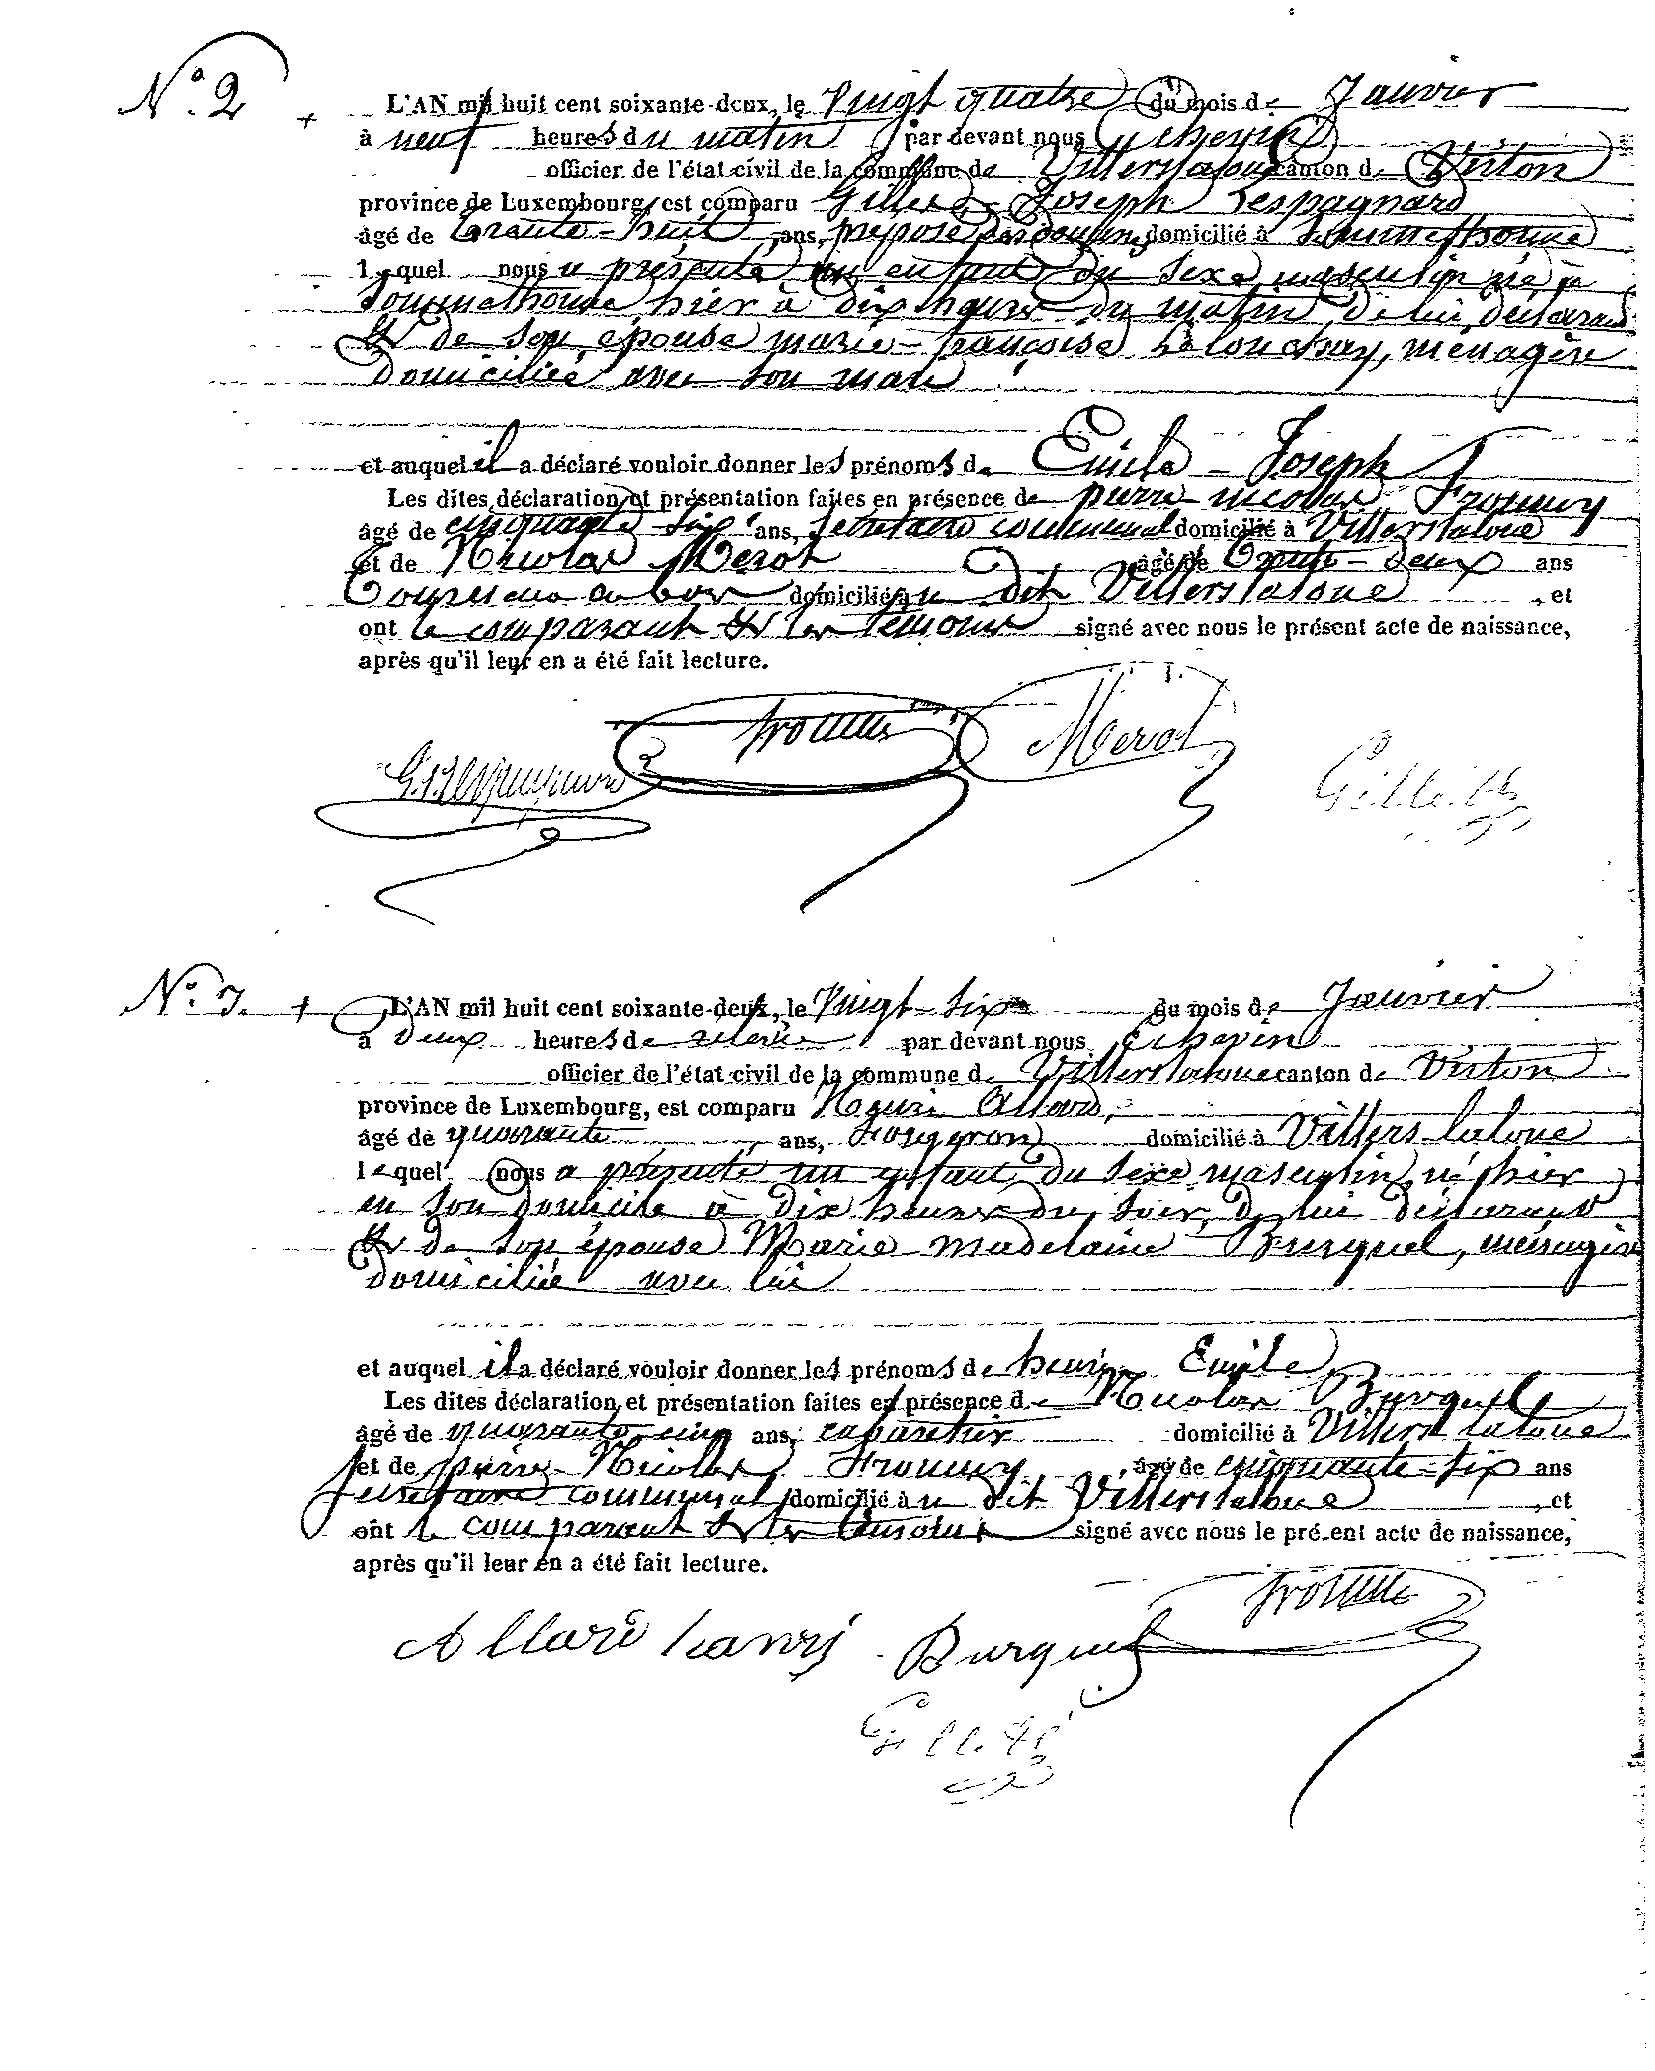 N° 2
L'AN mil huit cent soixante-deux, le Vingt quatre du mois de Janvier
à neuf heures du matin par devant nous Echevin
officier de l'état civil de la commune de Villerslaloue canton de Virton
province de Luxembourg, est comparu Gilles-Joseph Lespagnard
âgé de trente-huit ans, préposé des douanes domicilié à Sommethonne
lequel nous a présenté un enfant du sexe masculin né à
Sommethonne hier à dix heures du matin de lui déclarant
& de son épouse marie-françoise, ménagère
domiciliée avec son mari
et auquel il a déclaré vouloir donner les prénoms de Emile-Joseph
Les dites déclaration et présentation faites en présence de pierre nicolas Fromuy
âgé de cinquante-six ans, secretaire communal domicilié à Villerslaloue
et de Nicolas Merot âgé de trente-deux ans
Tourneur en bois domicilié au dit Villerslaloue, et
ont le comparant & les témoins signé avec nous le présent acte de naissance,
après qu'il leur en a été fait lecture.
G.J. Lespagnard Merot
N° 3.
L'AN mil huit cent soixante-deux, le Vingt-six du mois de Janvier
à deux heures de relevée par devant nous Echevin
officier de l'état civil de la commune de Villerslaloue canton de Virton
province de Luxembourg, est comparu Henri Allard,
âgé de quarante ans, Forgeron domicilié à Villers laloue
lequel nous a présenté un enfant du sexe masculin né hier
en son domicile à dix heures du soir, de lui déclarant
& de son épouse Marie madelaine Burquel, ménagère
domiciliée avec lui
et auquel il a déclaré vouloir donner les prénoms de henri Emile
Les dites déclaration et présentation faites en présence de Nicolas Burquel
âgé de quarante-cinq ans, cabaretier domicilié à Villers laloue
et de pierre-Nicolas Fromuy âgé de cinquante-six ans
secretaire communal domicilié au dit Villerslaloue, et
ont le comparant & les témoins signé avec nous le présent acte de naissance,
après qu'il leur en a été fait lecture.
Allard hanri Burquel